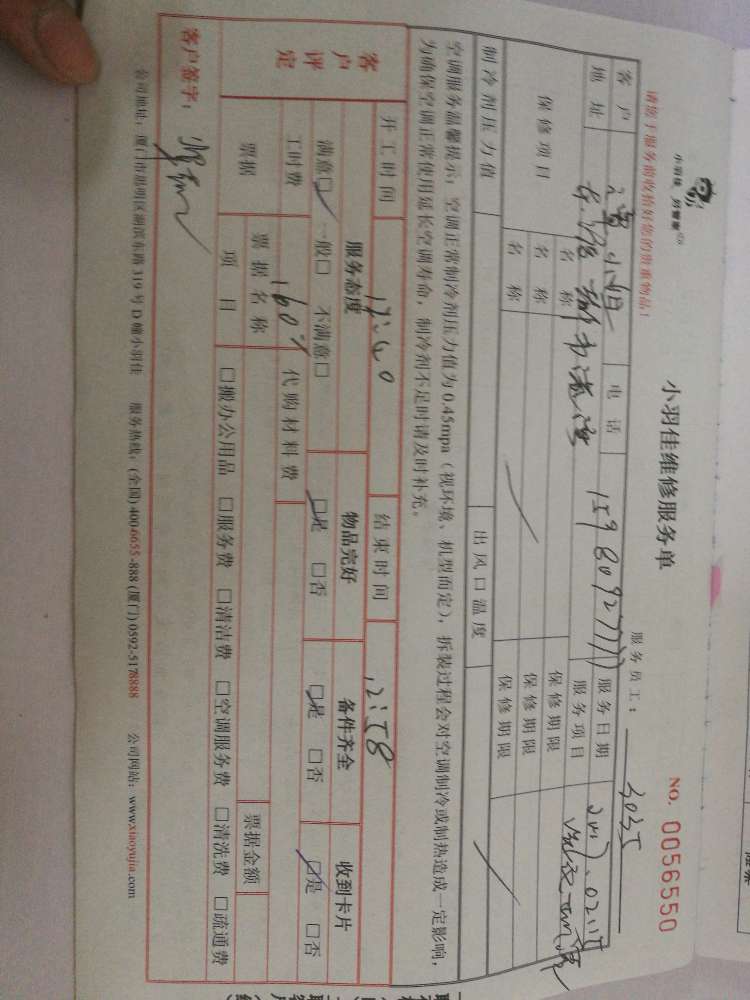 小羽佳 别管家
小羽佳维修服务单
NO. 0056550
请您于服务前收拾好您的贵重物品！
服务员工： 3035
客户 小姐 电话 服务日期
地址 服务项目
保修项目 名称 保修期限
名称 保修期限
名称 保修期限
制冷剂压力值 出风口温度
空调服务温馨提示：空调正常制冷剂压力值为 0.45mpa（视环境、机型而定），拆装过程会对空调制冷或制热造成一定影响，
为确保空调正常使用延长空调寿命，制冷剂不足时请及时补充。
开工时间 结束时间 12:58
客户评定
服务态度 物品完好 备件齐全 收到卡片
满意□ 一般□ 不满意□ □是 □否 □是 □否 □是 □否
工时费 160 代购材料费
票据 票据名称 票据金额
项目 □搬办公用品 □服务费 □清洁费 □空调服务费 □清洗费 □疏通费
客户签字：
公司地址：厦门市思明区湖滨东路 319 号 D 幢小羽佳 服务热线：(全国) 400-6655-888 (厦门) 0592-5178888 公司网站：www.xiaoyujia.com